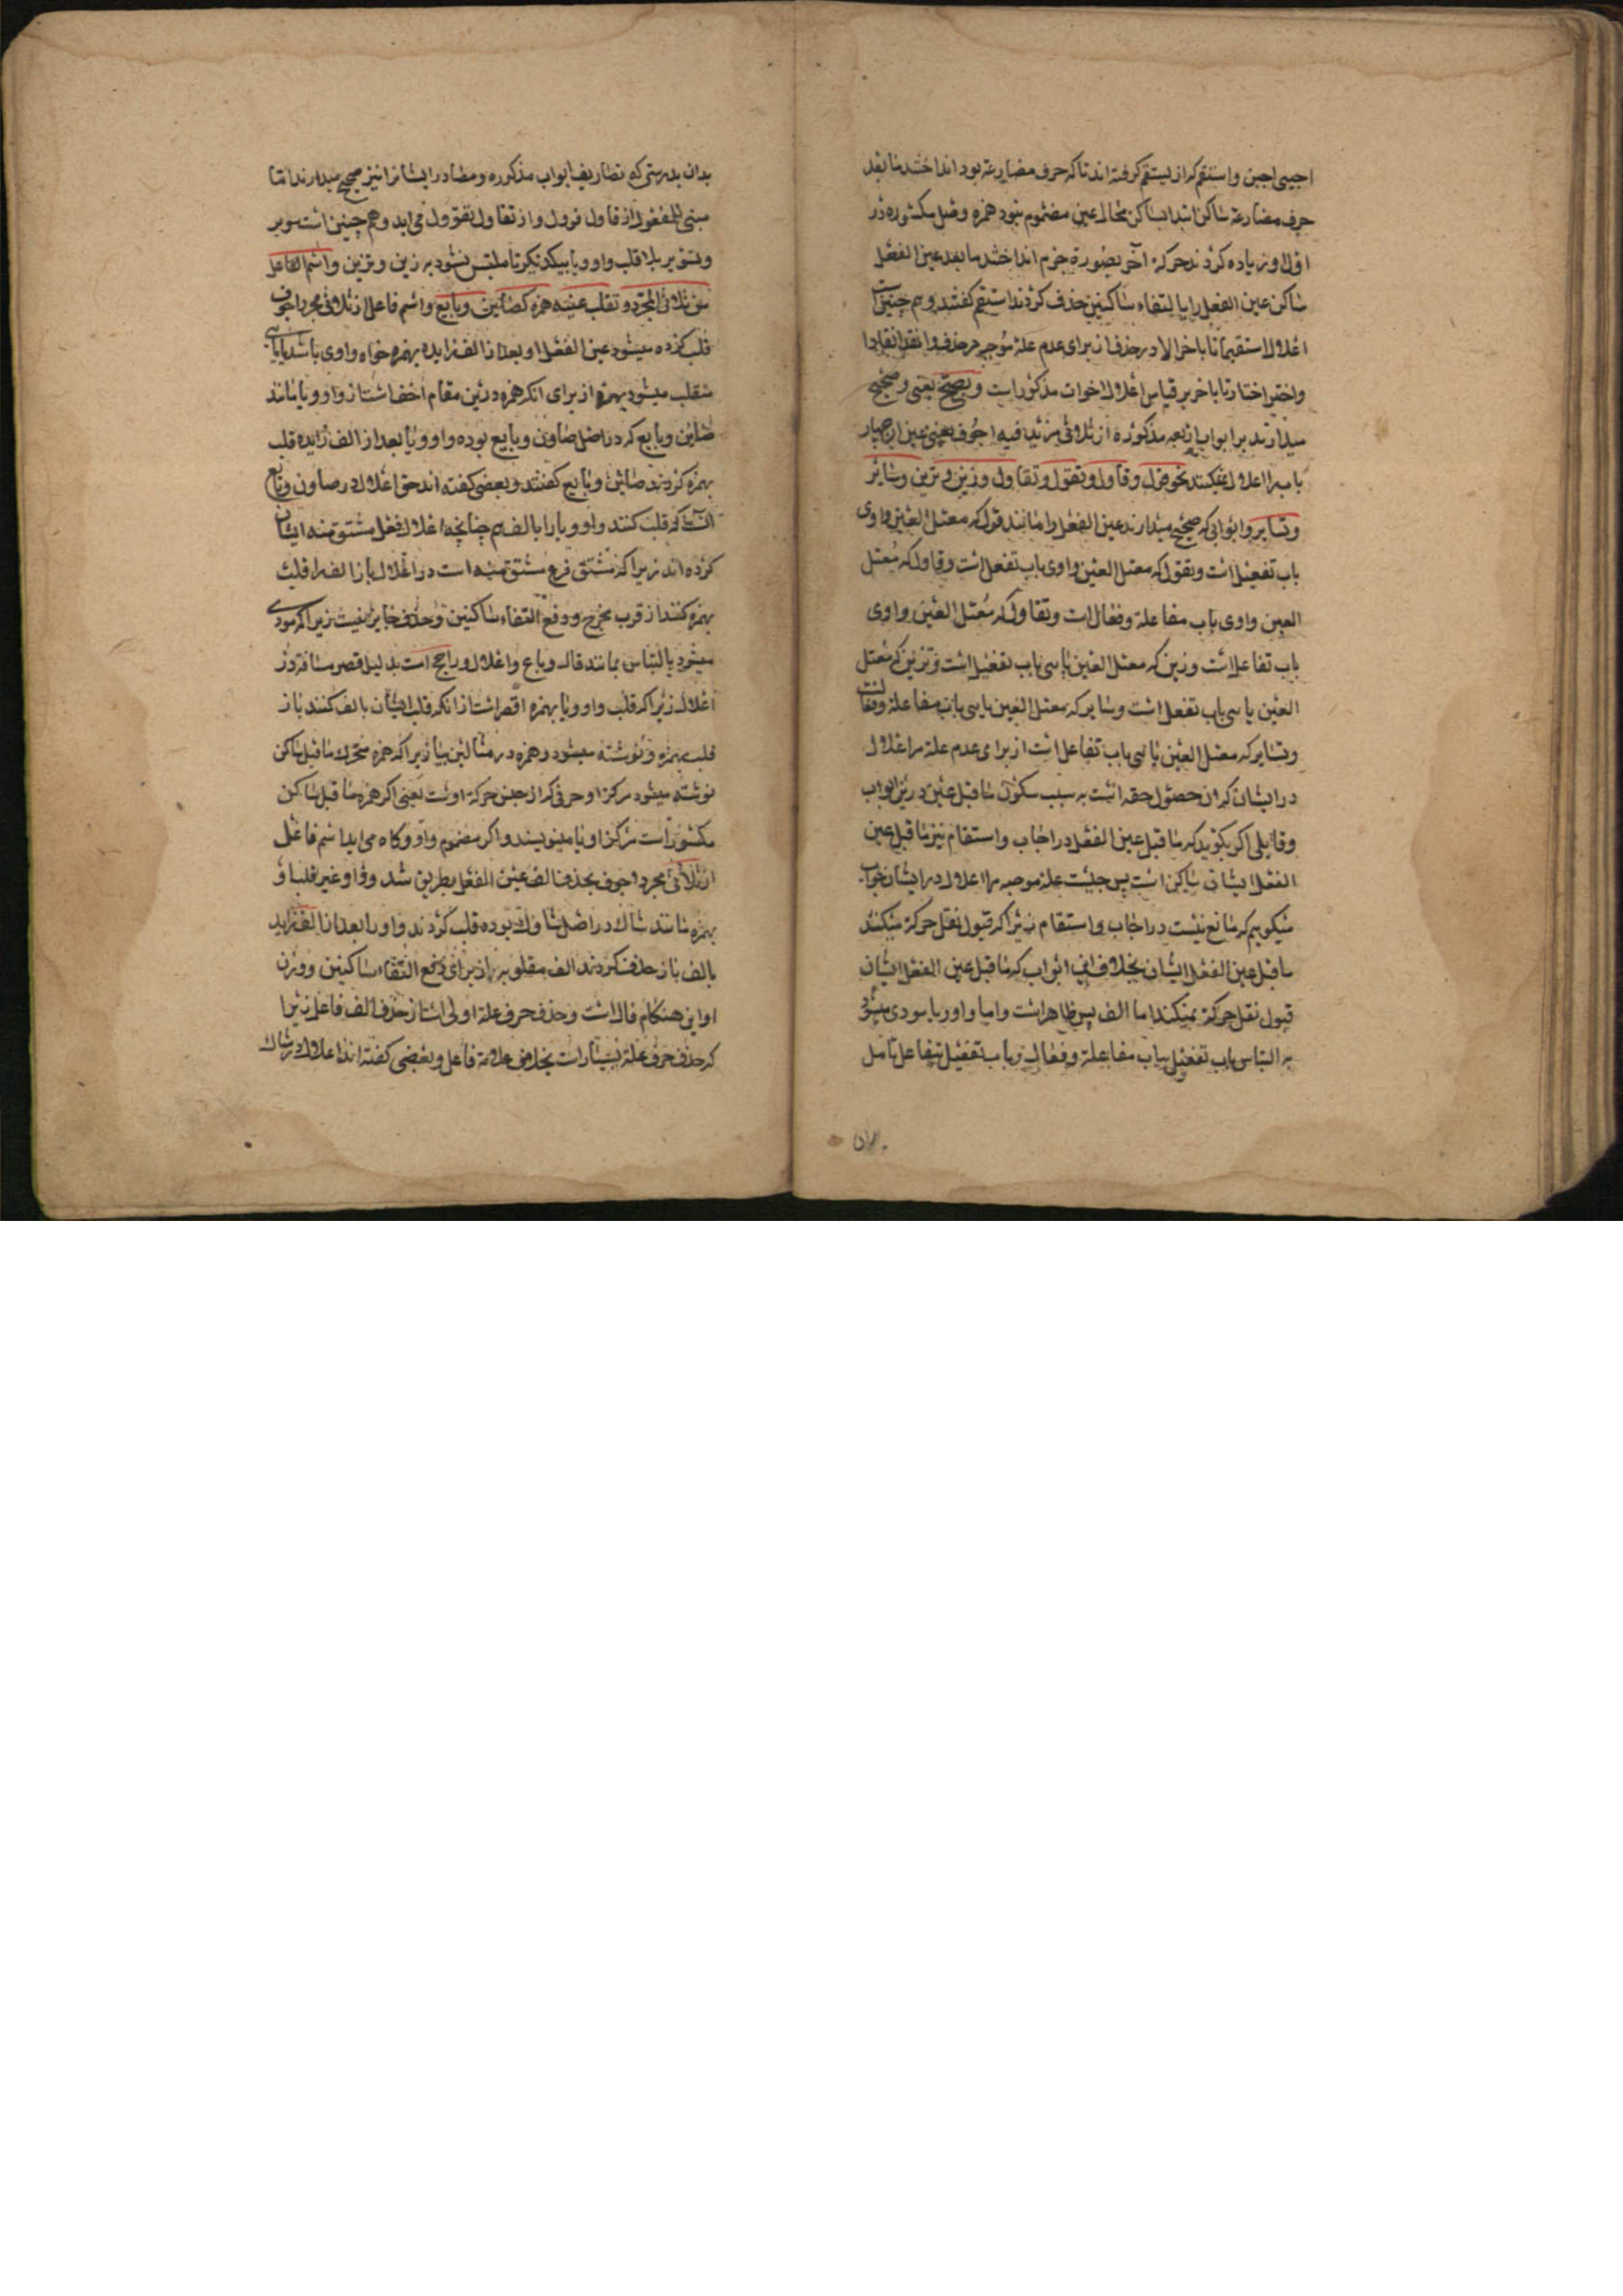 اجیبی اجبن واستقم که از یستقم کرفته اند تا که حرف مضارعة بود انداختند ما بعد
حرف مضارعة ساکن ابتدا بساکن محال عین مضموم نبود همزه وصل مکسوره در
اول او زیاده کردند حرکة آخر بصورة جزم انداختند ما بعد عین الفعل
ساکن عین الفعل را بالتقاء ساکنین حذف کردند استقم کفتند و هم چنین است
اعلال استقیما تا باخر الا در حذف از برای عدم علة موجبه حذف وانقد انقادا
واختر اختارتا باخر بر قیاس اعلال اخوات مذکور است ویصح یعنی و صحیح
میدارند بر ابواب اربعه مذکوره از ثلاثی مزید فیه اجوف یعنی عین
را اعلال نمیکنند نحو قول وقاول وتقول وتقاول وزین وتزین وسایر
وتسایر وابوابی که صحیح میدارند عین الفعل را مانند قول که معتل العین واوی
باب تفعیل است وتقول که معتل العین واوی باب تفعل است وقاول که معتل
العین واوی باب مفاعلة وفعال است وتقاول که معتل العین واوی
باب تفاعل است وزین که معتل العین یایی باب تفعیل است وتزین که معتل
العین یایی باب تفعل است وسایر که معتل العین یایی باب مفاعلة وفعال است
وتسایر که معتل العین یایی باب تفاعل است از برای عدم علة مر اعلال
در ایشان که ان حصول خفه است به سبب سکون ما قبل عین درین ابواب
وقایلی اکر بکوید که ما قبل عین الفعل در اجاب واستقام نیز ما قبل عین
الفعل ایشان ساکن است پس چیست علة موجبه مر اعلال در ایشان جواب
میکوییم که مانع نیست در اجاب واستقام زیرا که قبول نقل حرکة میکنند
ما قبل عین الفعل ایشان بخلاف این ابواب که ما قبل عین الفعل ایشان
قبول نقل حرکة نمیکند اما الف پس ظاهر است واما واو ویا مودی میشود
به التباس باب تفعیل بباب مفاعلة وفعال وباب تفعیل بتفاعل تامل
بدان بدرستی که تصاریف ابواب مذکوره ومصادر ایشانرا نیز صحیح میدارند اما
مبنی للمفعول از قاول قوول واز تقاول تقوول می اید وهم چنین است سویر
وتسویر بلا قلب واو ویا بیکدیکر تا ملتبس نشود به زین وتزین واسم الفاعل
من ثلاثی المجرد تقلب عینه همزه کصاین وبایع واسم فاعل از ثلاثی مجرد اجوف
قلب کرده میشود عین الفعل او بعد از الف زایده بهمزه خواه واوی باشد یا یایی
منقلب میشود بهمزه از برای انکه همزه درین مقام اخف است از واو ویا مانند
صاین وبایع که در اصل صاون وبایع بوده واو ویا بعد از الف زایده قلب
بهمزه کردند صاین وبایع کفتند وبعضی کفته اند حق اعلال در صاون وبایع
انست که قلب کنند واو ویا را بالف هم چنانچه اعلال فعل مشتق منه ایشان
کرده اند زیرا که مشتق فرع مشتق منه است در اعلال باز الف را قلب
بهمزه کنند از قرب مخرج ودفع التقاء ساکنین وحذف جایز نیست زیرا که مودی
میشود بالتباس بمانند قال وباع واعلال اول راجح است بدلیل قصر مسافة در
اعلال زیرا که قلب واو ویا بهمزه اقصر است از انکه قلب ایشان بالف کنند باز
قلب بهمزه ونوشته میشود همزه در مثالین بیا زیرا که همزه متحرک ما قبل ساکن
نوشته میشود مرکز او حرفی که از جنس حرکة اوست یعنی اکر همزه ما قبل ساکن
مکسور است مرکز او یا مینویسند واکر مضموم واو وکاه می اید اسم فاعل
از ثلاثی مجرد اجوف بحذف الف عین الفعل بطریق شذوذ وغیر قلب او
بهمزه مانند شاک در اصل شاوک بوده قلب کردند واو را بعد از الف زاید
بالف باز حذف کردند الف مقلوبه را از برای دفع التقاء ساکنین ووزن
او این هنکام فال است وحذف حرف علة اولی است از حذف الف فاعل زیرا
که حذف حرف علة بسیار است بخلاف علامة فاعل وبعضی کفته اند اعلال در شاک